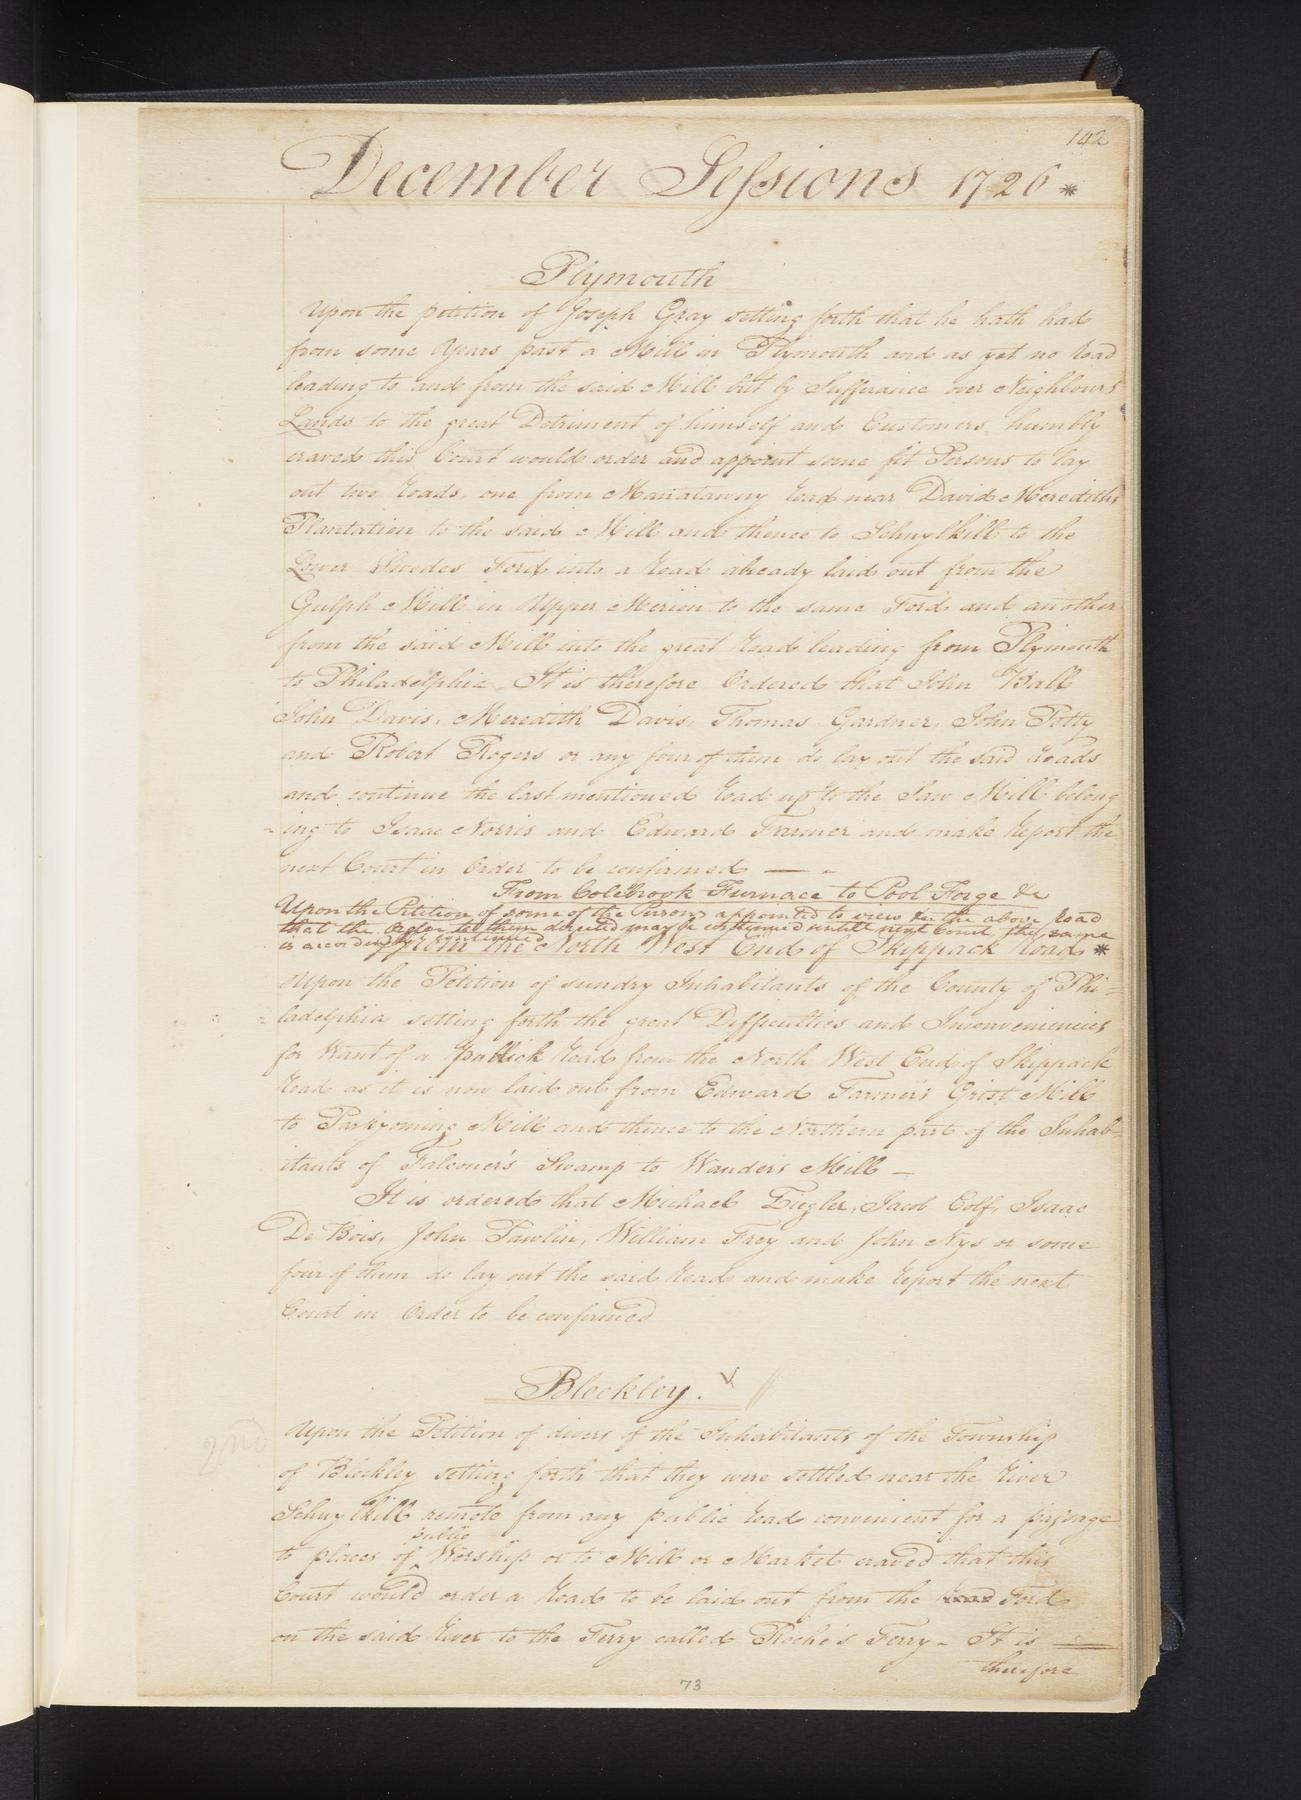 142
December Sessions 1726 *
Plymouth
Upon the petition of Joseph Gray setting forth that he hath had
from some Years past a Mill in Plymouth and as yet no road
leading to and from the said Mill but by Sufferance over Neighbours
Lands to the great Detriment of himself and Customers humbly
craved this Court would order and appoint some fit Persons to lay
out two roads, one from Manatawny road near David Merediths
Plantation to the said Mill and thence to Schuylkill to the
Lower Swedes Ford into a road already laid out from the
Gulph Mill in Upper Merion to the same Ford and another
from the said Mill into the great road leading from Plymouth
to Philadelphia It is therefore Ordered that John Ball
John Davis, Meredith Davis, Thomas Gardner, John Potty
and Robert Rogers or any four of them do lay out the said roads
and continue the last mentioned road up to the Saw Mill belong
=ing to Isaac Norris and Edward Farmer and make report the
next Court in Order to be confirmed —
From Colebrook Furnace to Pool Forge &c
Upon the Petition of some of the Persons appointed to view &c the above road
that the Order to them directed may be continued untill next Court the same
is accordingly continued
From the North West End of Skippack road *
Upon the Petition of sundry Inhabitants of the County of Phi=
=ladelphia setting forth the great Difficulties and Inconveniencies
for Want of a publick road from the North West End of Skippack
road as it is now laid out from Edward Farmer's Grist Mill
to Parkyoming Mill and thence to the Northern part of the Inhab-
itants of Falconer's Swamp to Wanders Mill —
It is ordered that Michael Ziegler, Jacob Colf, Isaac
De Bois, John Pawlin, William Frey and John Nys or some
four of them do lay out the said road and make report the next
Court in Order to be confirmed
Blockley. V
2nd
Upon the Petition of divers of the Inhabitants of the Township
of Blockley setting forth that they were settled near the River
Schuylkill remote from any public road convenient for a passage
public
to places of ^ Worship or to Mill or Market craved that this
Court would order a road to be laid out from the road Ford
on the said River to the Ferry called Roche's Ferry - It is —
therefore
73